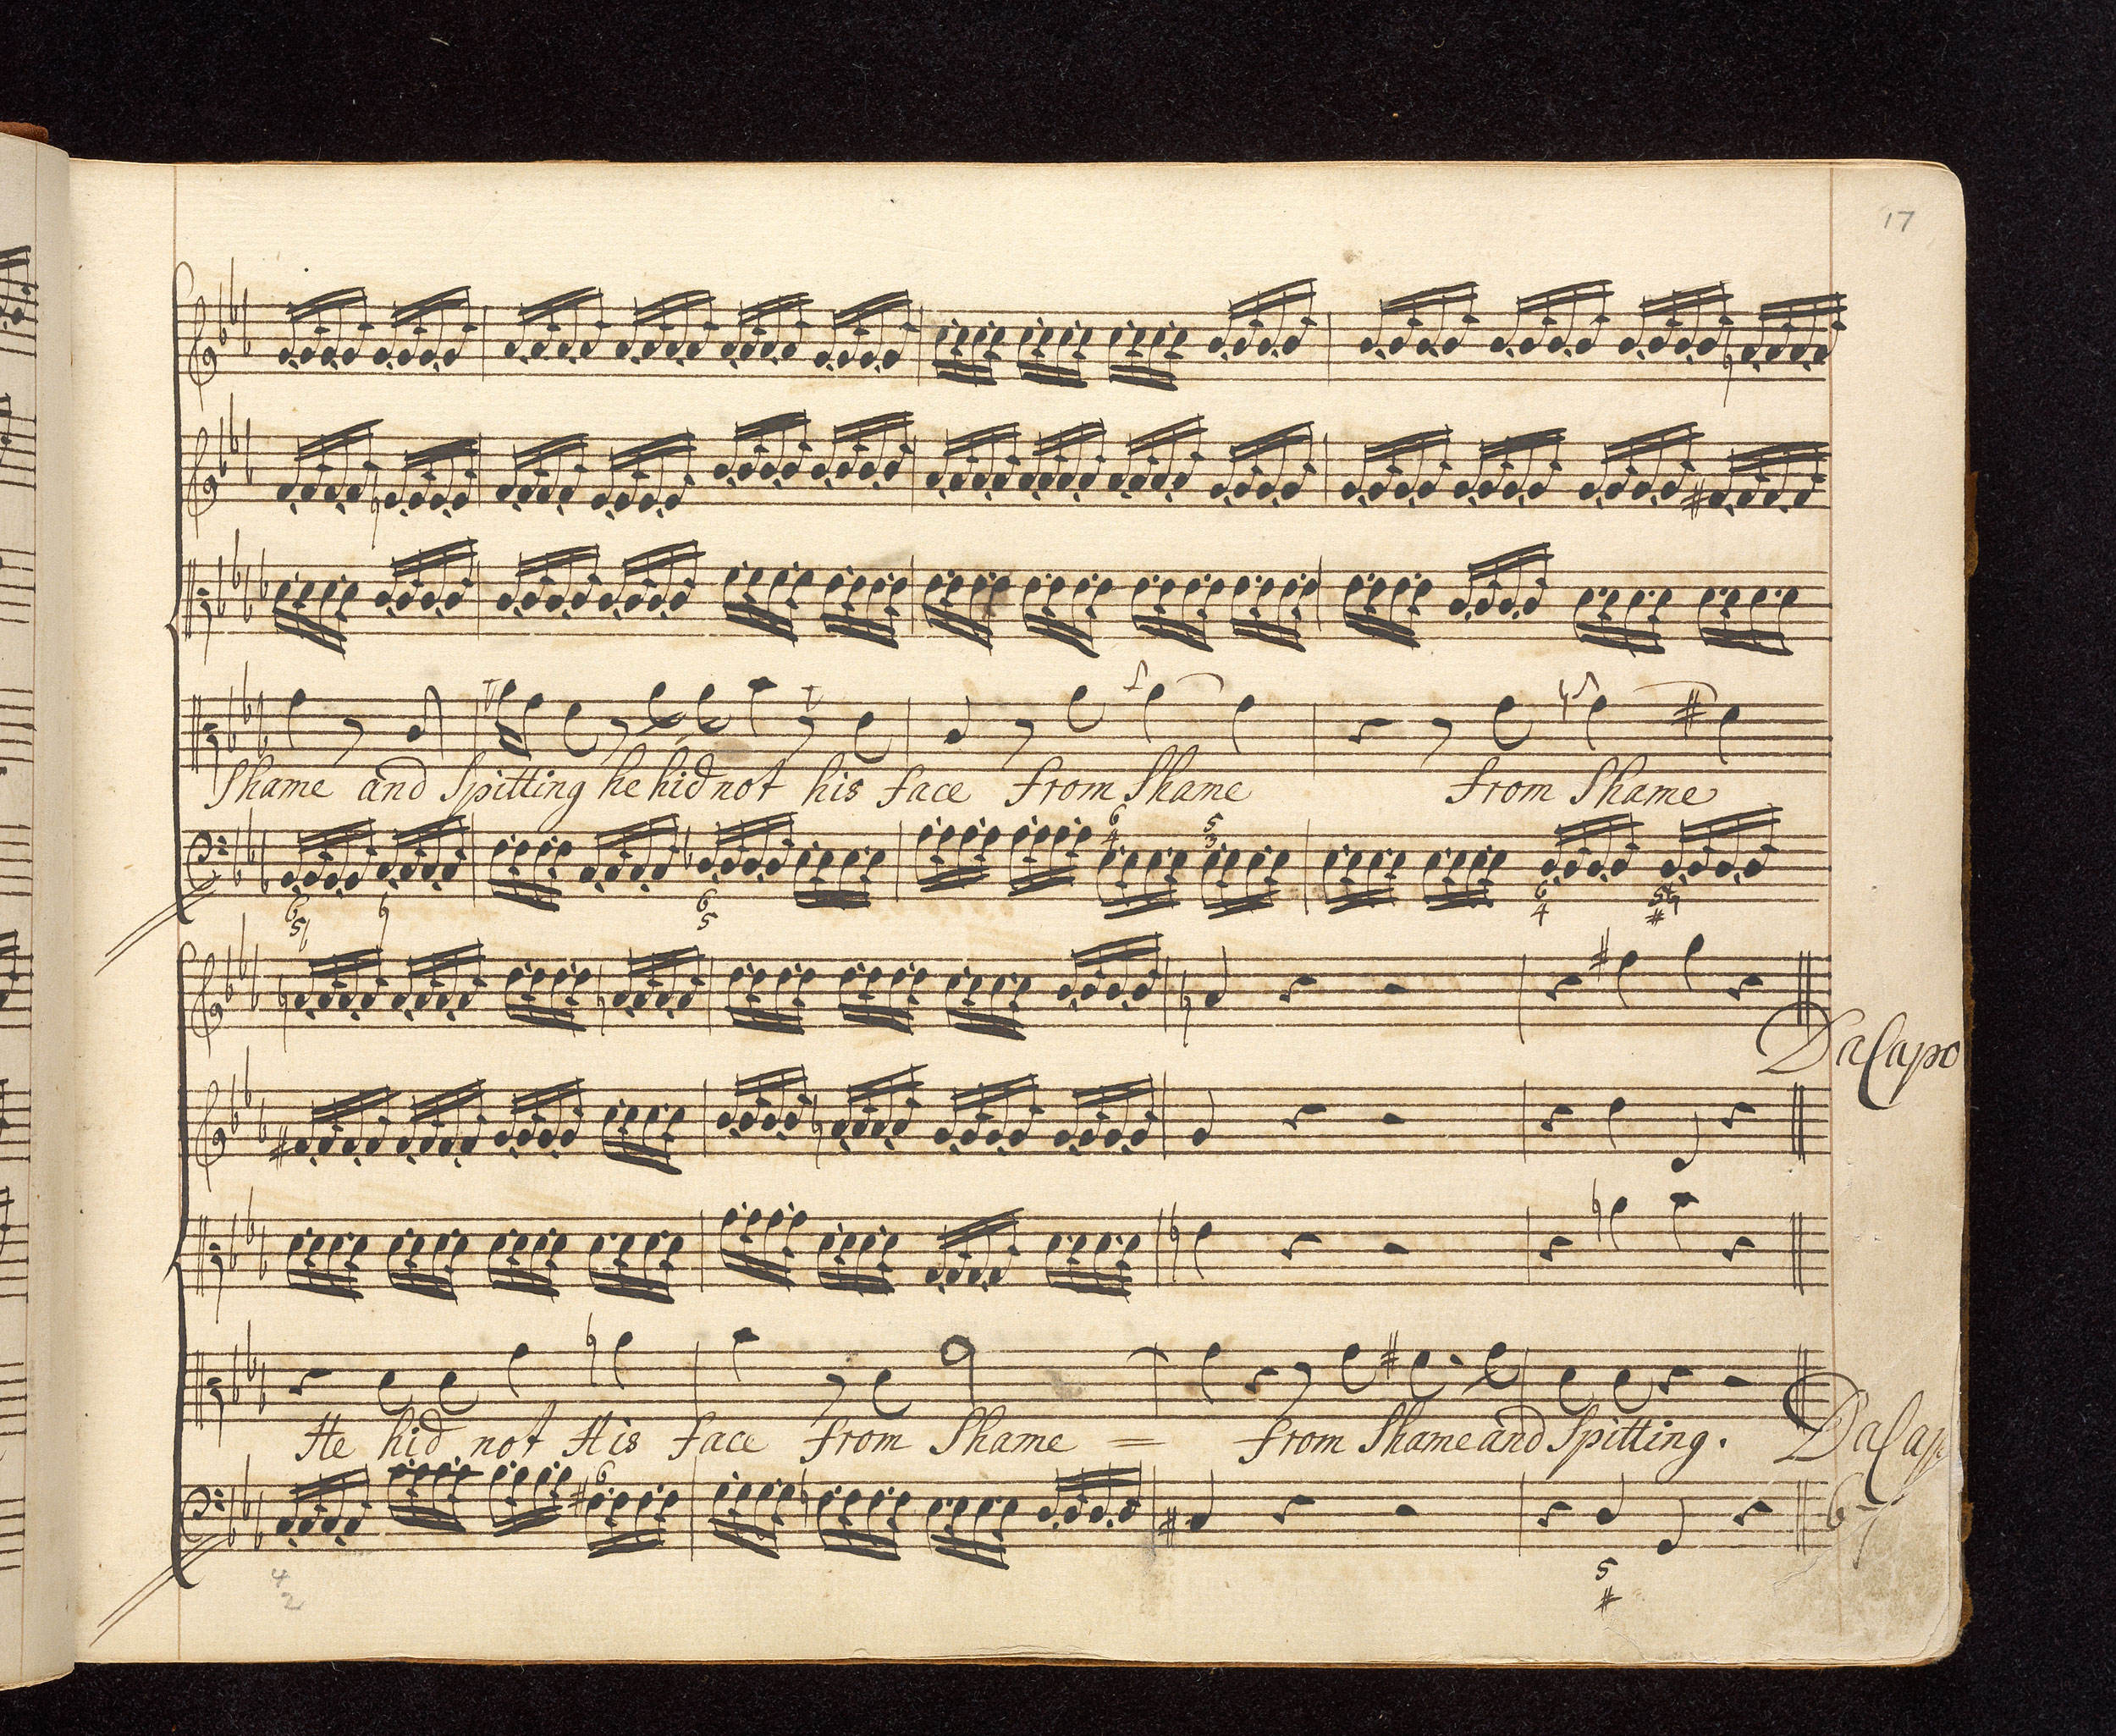 17
Shame and Spitting he hid not his face from Shame from Shame
6 4 5 3
6 5 6 5 6 4 5 #
Da Capo
He hid not His face from Shame = from Shame and Spitting. Da Cap
6
5 #
4 2